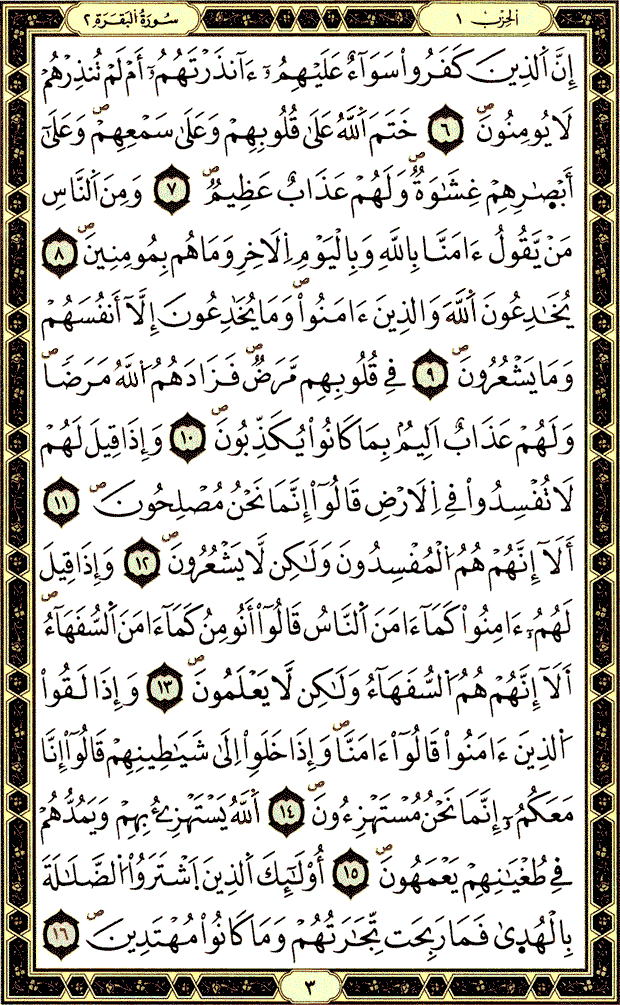 الحِزْب ١
سُورَةُ البَقَرَةِ ٢
إِنَّ اَ۬لذِينَ كَفَرُواْ سَوَآءٌ عَلَيْهِمُۥٓ ءَآنذَرْتَهُمُۥٓ أَمْ لَمْ تُنذِرْهُمْ
لَا يُومِنُونَۖ ٦ خَتَمَ اَ۬للَّهُ عَلَىٰ قُلُوبِهِمْ وَعَلَىٰ سَمْعِهِمْۖ وَعَلَىٰٓ
أَبْصٰ۪رِهِمْ غِشَٰوَةٞۖ وَلَهُمْ عَذَابٌ عَظِيمٞۖ ٧ وَمِنَ اَ۬لنَّاسِ
مَنْ يَّقُولُ ءَامَنَّا بِاللَّهِ وَبِالْيَوْمِ اِ۬لَاخِرِ وَمَا هُم بِمُومِنِينَۖ ٨
يُخَٰدِعُونَ اَ۬للَّهَ وَالذِينَ ءَامَنُواْۖ وَمَا يُخَٰدِعُونَ إِلَّآ أَنفُسَهُمْ
وَمَا يَشْعُرُونَۖ ٩ فِے قُلُوبِهِم مَّرَضٞۖ فَزَادَهُمُ اُ۬للَّهُ مَرَضاٗۖ
وَلَهُمْ عَذَابٌ اَلِيمُۢ بِمَا كَانُواْ يُكَذِّبُونَۖ ١٠ وَإِذَا قِيلَ لَهُمْ
لَا تُفْسِدُواْ فِے اِ۬لَارْضِ قَالُوٓاْ إِنَّمَا نَحْنُ مُصْلِحُونَۖ ١١
أَلَآ إِنَّهُمْ هُمُ اُ۬لْمُفْسِدُونَ وَلَٰكِن لَّا يَشْعُرُونَۖ ١٢ وَإِذَا قِيلَ
لَهُمُۥٓ ءَامِنُواْ كَمَآ ءَامَنَ اَ۬لنَّاسُ قَالُوٓاْ أَنُومِنُ كَمَآ ءَامَنَ اَ۬لسُّفَهَآءُۖ
أَلَآ إِنَّهُمْ هُمُ اُ۬لسُّفَهَآءُ وَلَٰكِن لَّا يَعْلَمُونَۖ ١٣ وَإِذَا لَقُواْ
اُ۬لذِينَ ءَامَنُواْ قَالُوٓاْ ءَامَنَّاۖ وَإِذَا خَلَوِاْ اِلَىٰ شَيَٰطِينِهِمْ قَالُوٓاْ إِنَّا
مَعَكُمُۥٓ إِنَّمَا نَحْنُ مُسْتَهْزِءُونَۖ ١٤ اَ۬للَّهُ يَسْتَهْزِۓُ بِهِمْ وَيَمُدُّهُمْ
فِے طُغْيَٰنِهِمْ يَعْمَهُونَۖ ١٥ أُوْلَٰٓئِكَ اَ۬لذِينَ اَ۪شْتَرَوُاْ اُ۬لضَّلَٰلَةَ
بِالْهُد۪ىٰ فَمَا رَبِحَت تِّجَٰرَتُهُمْ وَمَا كَانُواْ مُهْتَدِينَۖ ١٦
٣